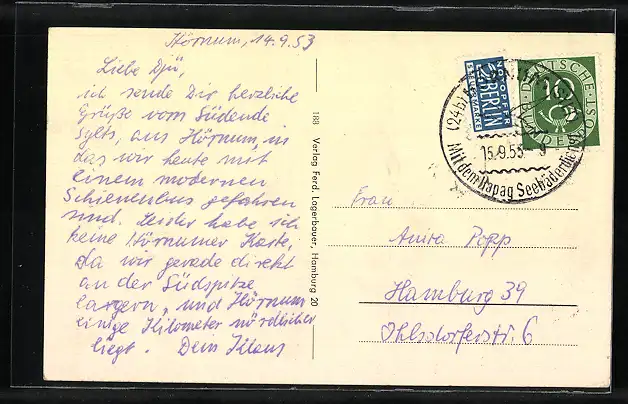 Hörnum, 14.9.53
Liebe Djü,
ich sende Dir herzliche
Grüße vom Südende
Sylts, aus Hörnum, in
das wir heute mit
einem modernen
Schienenbus gefahren
sind. Leider habe ich
keine Hörnumer Karte,
da wir gerade direkt
an der Südspitze
lagern, und Hörnum
einige Kilometer nördlicher
liegt. Dein Klaus
183 Verlag Ferd. Lagerbauer, Hamburg 20
NOTOPFER
2 BERLIN
STEUERMARKE
DEUTSCHE
POST
10
(24b)
15.9.53 - 9
Mit dem Hapag Seebäderdienst
Frau
Anita Popp
Hamburg 39
Ohlsdorferstr. 6